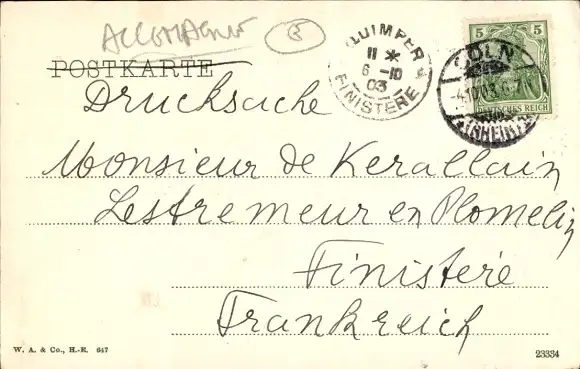 ACCOMPAGNÉ
R
QUIMPER
11 *
6 -10
03
FINISTÈRE
5 5
DEUTSCHES REICH
CÖLN
POSTKARTE
Drucksache
Monsieur de Kerallain
Lestremeur en Plomelin
Finistère
Frankreich
W. A. & Co., H.-R. 647
23334